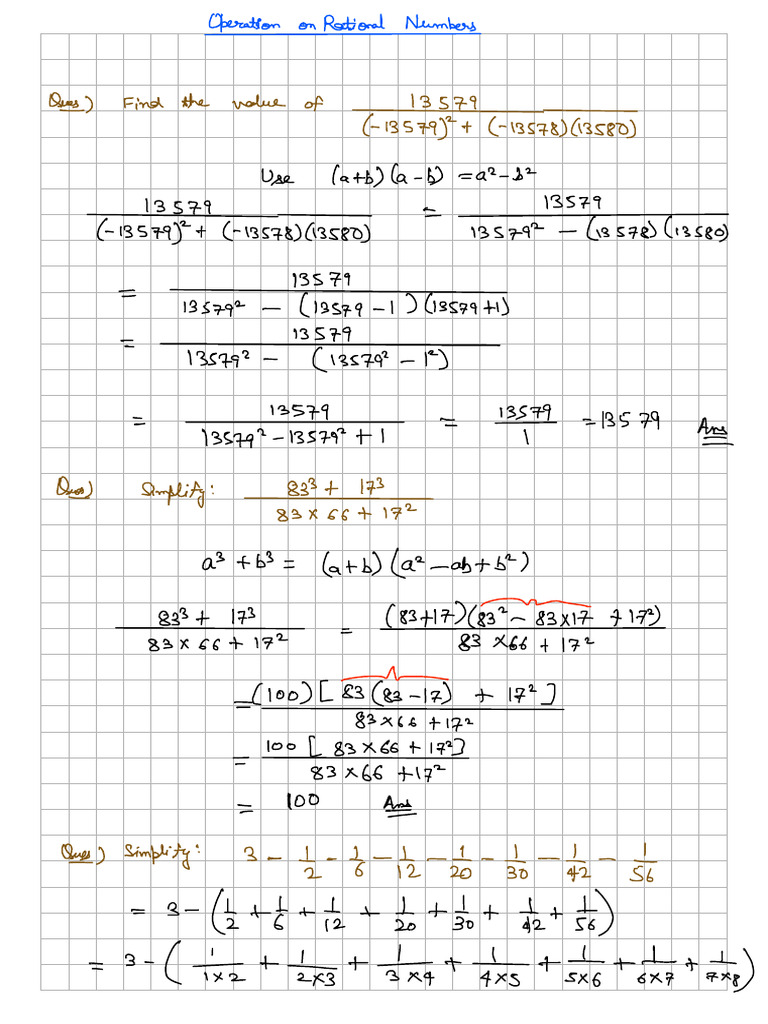 Operation on Rational Numbers
Ques) Find the value of 13579 / ((-13579)² + (-13578)(13580))
Use (a+b)(a-b) = a²-b²
13579 / ((-13579)² + (-13578)(13580)) = 13579 / (13579² - (13578)(13580))
= 13579 / (13579² - (13579-1)(13579+1))
= 13579 / (13579² - (13579² - 1²))
= 13579 / (13579² - 13579² + 1) = 13579 / 1 = 13579 Ans
Ques) Simplify: (83³ + 17³) / (83 × 66 + 17²)
a³ + b³ = (a+b)(a² - ab + b²)
(83³ + 17³) / (83 × 66 + 17²) = (83+17)(83² - 83×17 + 17²) / (83 × 66 + 17²)
= (100)[83(83-17) + 17²] / (83×66 + 17²)
= 100[83×66 + 17²] / (83×66 + 17²)
= 100 Ans
Ques) Simplify: 3 - 1/2 - 1/6 - 1/12 - 1/20 - 1/30 - 1/42 - 1/56
= 3 - (1/2 + 1/6 + 1/12 + 1/20 + 1/30 + 1/42 + 1/56)
= 3 - (1/1×2 + 1/2×3 + 1/3×4 + 1/4×5 + 1/5×6 + 1/6×7 + 1/7×8)